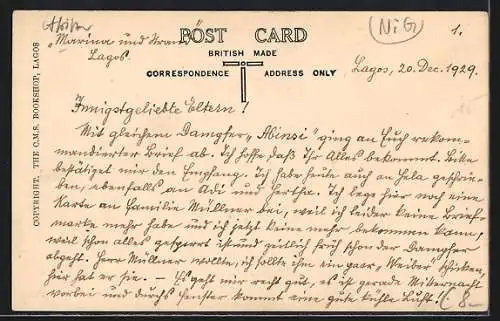 Afrika
(NiG)
1.
"Marina und Strand,"
Lagos.
POST CARD
BRITISH MADE
CORRESPONDENCE ADDRESS ONLY
Lagos, 20. Dec. 1929.
Innigstgeliebte Eltern!
Mit gleichem Dampfer "Abinsi" ging an Euch rekom-
mandierter Brief ab. Ich hoffe daß Ihr Alles bekommt. Bitte
bestätiget mir den Empfang. Ich habe heute auch an Hela geschrie-
ben, ebenfalls an Adi und Hertha. Ich lege hier noch eine
Karte an Familie Müllner bei, weil ich leider keine Brief-
marke mehr habe und ich jetzt keine mehr bekommen kann,
weil schon alles gesperrt ist und zeitlich früh schon der Dampfer
abgeht. Herr Müllner wollte, ich sollte ihm ein paar "Weiber" schicken,
hier hat er sie. – Es geht mir recht gut, es ist gerade Mitternacht
vorbei und durchs Fenster kommt eine gute kühle Luft!
COPYRIGHT, THE C.M.S. BOOKSHOP, LAGOS